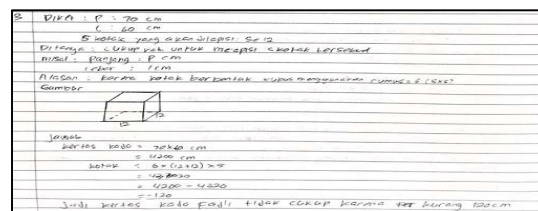 3 Diket : P : 70 cm
L : 60 cm
5 kotak yang akan dilapisi S = 12
Ditanya : cukup kah untuk melapisi 5 kotak tersebut
misal : Panjang : P cm
Leber : l cm
Alasan : karna kotak berbentuk kubus menggunakan rumus = 6 (sxs)
Gambar
12
12
Jawab
kertas kado = 70x60 cm
= 4200 cm
kotak = 6 x (12+12) x 5
= 4320
= 4200 - 4320
= -120
Jadi kertas kado Fadli tidak cukup karna kurang 120cm